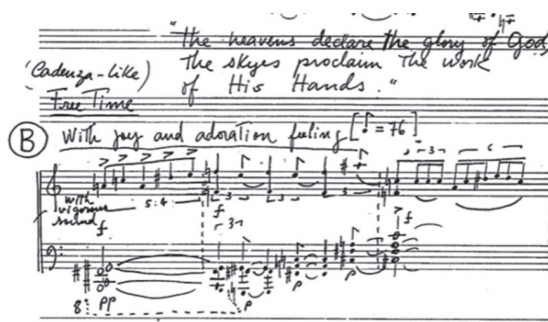 "The heavens declare the glory of God,
The skyes proclaim The work
of His Hands."
(Cadenza-like)
Free Time
B With joy and adoration feeling [♪=76]
3 6
with
vigorous
sound
5:4 3 3 3
f f f
3
8 pp p p p